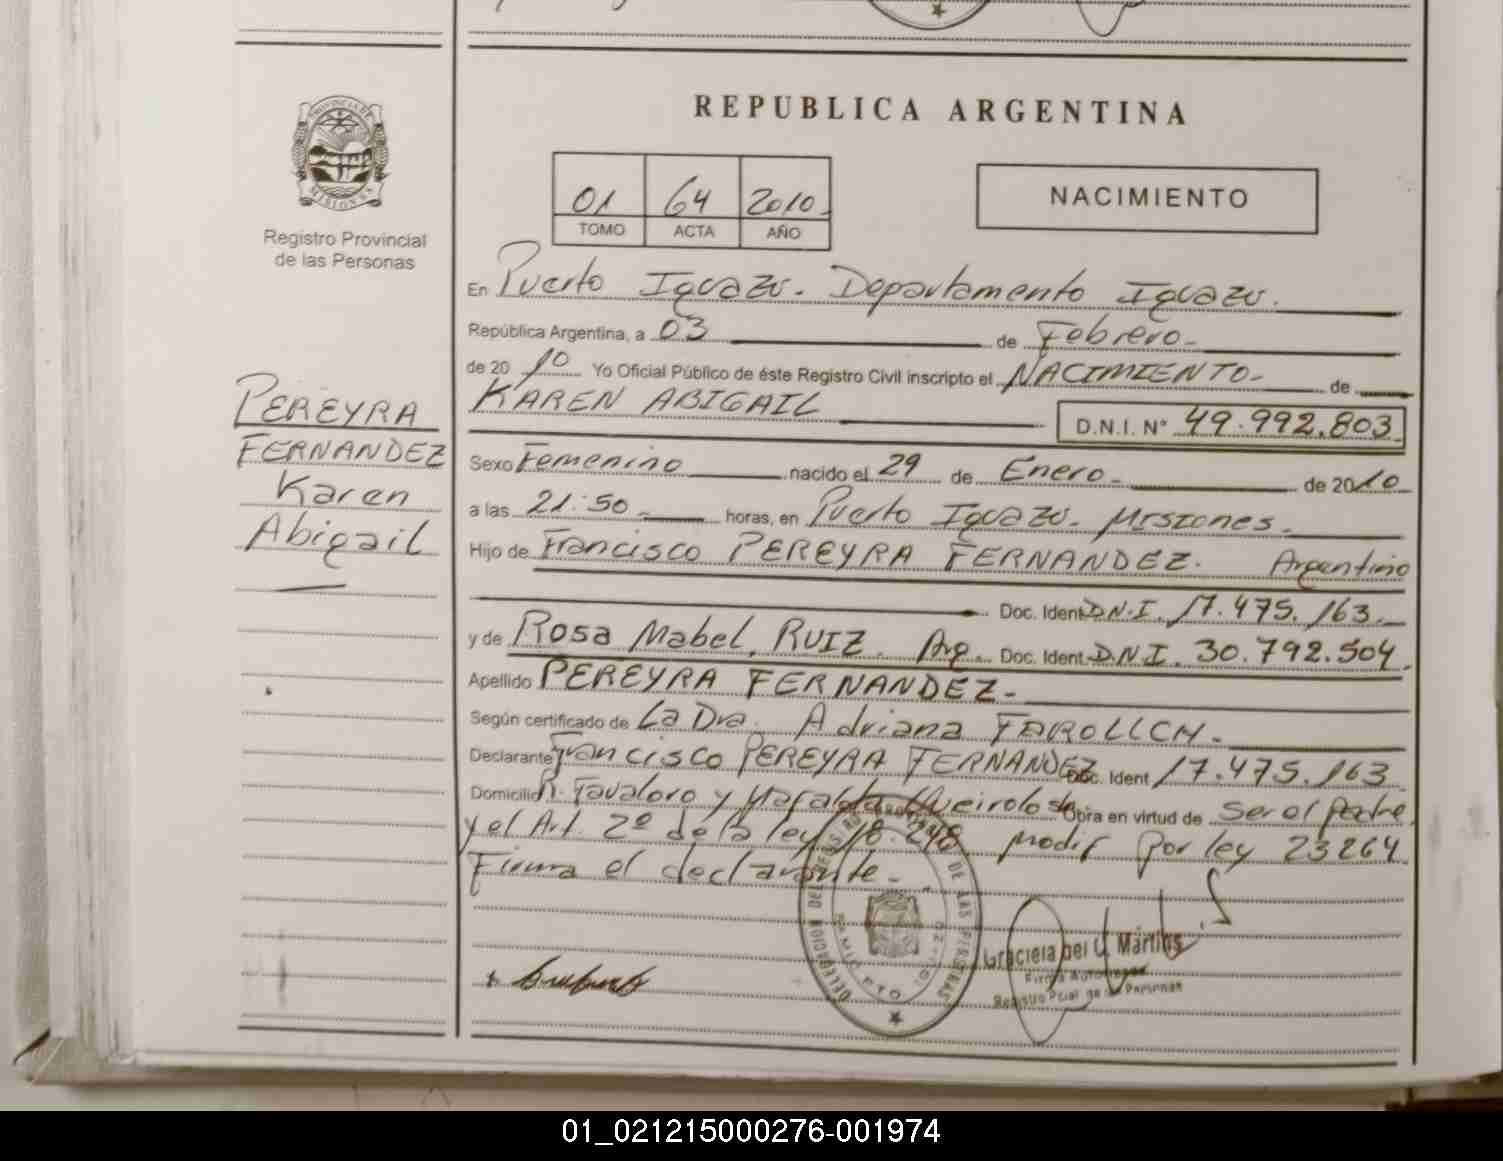 REPUBLICA ARGENTINA
PROVINCIA DE
MISIONES
Registro Provincial
de las Personas
01 64 2010
TOMO ACTA AÑO
NACIMIENTO
En Puerto Iguazu. Departamento Iguazu.
República Argentina, a 03 de Febrero
de 20 10 Yo Oficial Público de éste Registro Civil inscripto el NACIMIENTO de
KAREN ABIGAIL D.N.I. N° 49.992.803
PEREYRA
FERNANDEZ
Karen
Abigail
Sexo Femenino nacido el 29 de Enero de 2010
a las 21:50 horas, en Puerto Iguazu. Misiones.
Hijo de Francisco PEREYRA FERNANDEZ. Argentino
Doc. Ident. D.N.I. 17.475.163
y de Rosa Mabel, RUIZ. Arg. Doc. Ident. D.N.I. 30.792.504
Apellido PEREYRA FERNANDEZ
Según certificado de La Dra. Adriana
Declarante Francisco PEREYRA FERNANDEZ Doc. Ident. 17.475.163
Domicilio R. Favaloro y Queirolo Obra en virtud de ser el padre
y el Art. 2º de la ley 18.248 modif por ley 23264
Firma el declarante
DELEGACION DEL REGISTRO DE LAS PERSONAS
Graciela del C. Martins
Firma Autorizada
Registro Pcial de las Personas
01_021215000276-001974